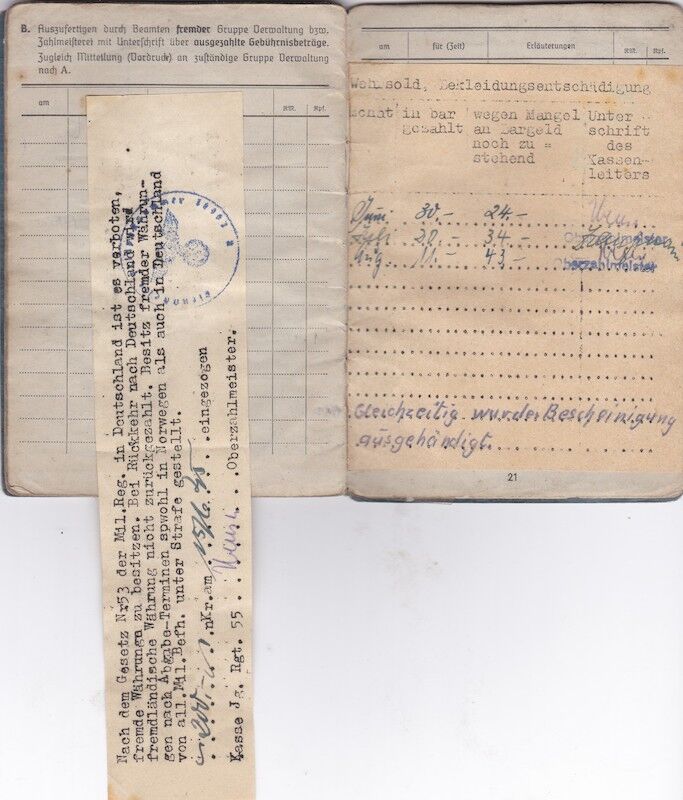 B. Auszufertigen durch Beamten fremder Gruppe Verwaltung bzw.
Zahlmeisterei mit Unterschrift über ausgezahlte Gebührnisbeträge.
Zugleich Mitteilung (Vordruck) an zuständige Gruppe Verwaltung
nach A.
am
RM. Rpf.
Nach dem Gesetz Nr53 der Mil.Reg. in Deutschland ist es verboten,
fremde Währungn zu besitzen. Bei Rückkehr nach Deutschland wird
fremdländische Währung nicht zurückgezahlt. Besitz fremder Währun-
gen nach Abgabe-Terminen sowohl in Norwegen als auch in Deutschland
von all.Mil.Befh. unter Strafe gestellt.
nKr.am 15/6.45 eingezogen
Kasse Jg. Rgt. 55 Oberzahlmeister.
am für (Zeit) Erläuterungen RM. Rpf.
Wehrsold, Bekleidungsentschädigung
in bar wegen Mangel Unter
gezahlt an Bargeld schrift
noch zu = des
stehend Kassen-
leiters
Juni 30.- 24.-
Juli 20.- 34.-
Aug. 11.- 43.-
Oberzahlmeister
Gleichzeitig wurde Bescheinigung
ausgehändigt.
21